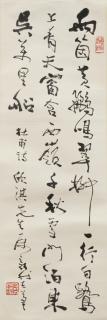 兩箇黃鸝鳴翠柳一行白鷺
上青天窗含西嶺千秋雪門泊東
吳萬里船
杜甫詩